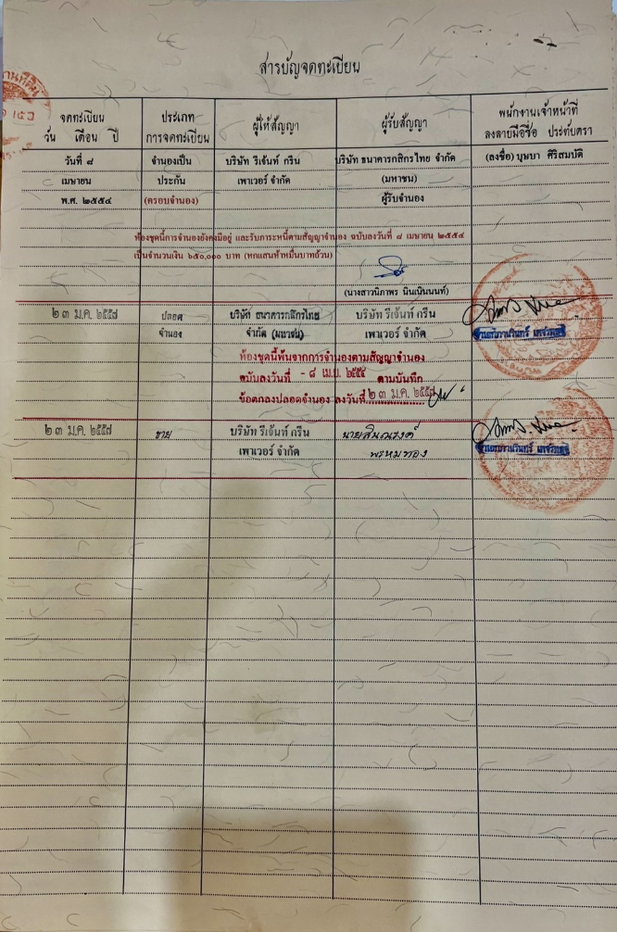 สารบัญจดทะเบียน
จดทะเบียน
วัน เดือน ปี
ประเภท
การจดทะเบียน
ผู้ให้สัญญา
ผู้รับสัญญา
พนักงานเจ้าหน้าที่
ลงลายมือชื่อ ประทับตรา
วันที่ ๘ จำนองเป็น บริษัท รีเจ้นท์ กรีน บริษัท ธนาคารกสิกรไทย จำกัด (ลงชื่อ) บุษบา ศิริสมบัติ
เมษายน ประกัน เพาเวอร์ จำกัด (มหาชน)
พ.ศ. ๒๕๕๔ (ครอบจำนอง) ผู้รับจำนอง
ห้องชุดนี้การจำนองยังคงมีอยู่ และรับภาระหนี้ตามสัญญาจำนอง ฉบับลงวันที่ ๘ เมษายน ๒๕๕๔
เป็นจำนวนเงิน ๖๕๐,๐๐๐ บาท (หกแสนห้าหมื่นบาทถ้วน)
(นางสาวนิภาพร นินเนินนนท์)
๒๓ ม.ค. ๒๕๕๗ ปลอด บริษัท ธนาคารกสิกรไทย บริษัท รีเจ้นท์ กรีน
จำนอง จำกัด (มหาชน) เพาเวอร์ จำกัด
ห้องชุดนี้พ้นจากการจำนองตามสัญญาจำนอง
ฉบับลงวันที่ - ๘ เม.ย. ๒๕๕๔ ตามบันทึก
ข้อตกลงปลอดจำนอง ลงวันที่ ๒๓ ม.ค. ๒๕๕๗
๒๓ ม.ค. ๒๕๕๗ ขาย บริษัท รีเจ้นท์ กรีน นายสินณรงค์
เพาเวอร์ จำกัด พรหมทอง